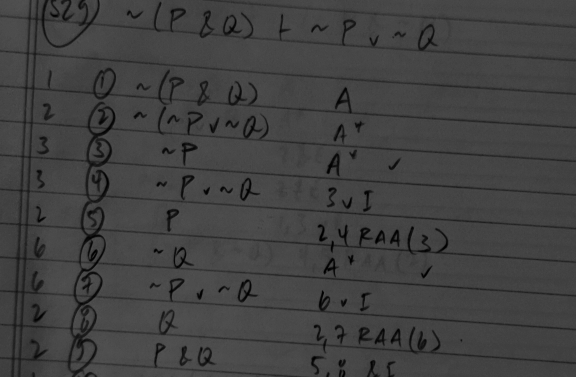 S29 ~(P & Q) ⊢ ~P v ~Q
1 ① ~(P & Q) A
2 ② ~(~P v ~Q) A*
3 ③ ~P A* ✓
3 ④ ~P v ~Q 3 v I
2 ⑤ P 2,4 RAA(3)
6 ⑥ ~Q A* ✓
6 ⑦ ~P v ~Q 6 v I
2 ⑧ Q 2,7 RAA(6)
2 ⑨ P & Q 5,8 & I